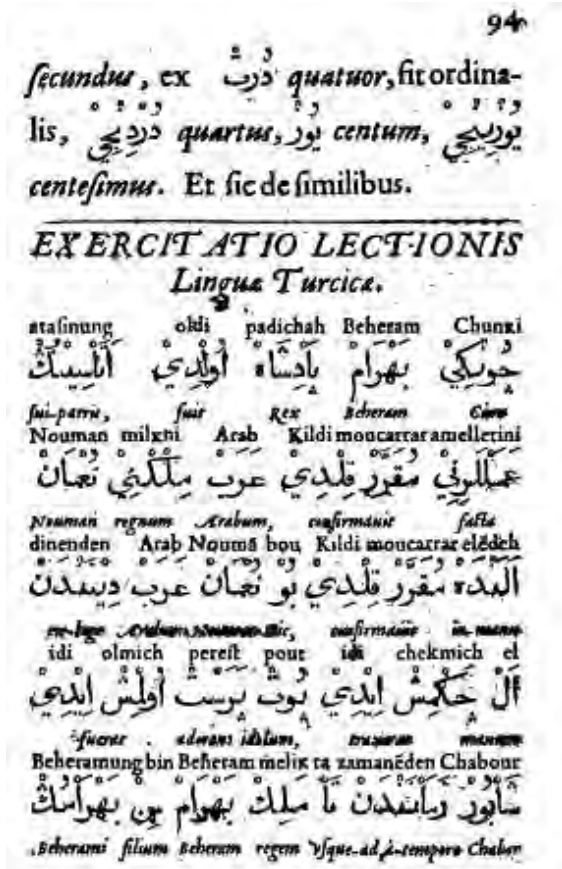 94
secundus, ex درت quatuor, fit ordina-
lis, دردنجي quartus, يوز centum, يوزينجي
centesimus. Et sic de similibus.
EXERCITATIO LECTIONIS
Linguæ Turcicæ.
atasinung oldi padichah Beheram Chunki
چونكي بهرام پادشاه اولدي اتاسينيڭ
sui-patris, fuit Rex Beheram
Nouman milkni Arab Kildi moucarrar amellerini
عمللرني مقرر قلدي عرب ملكني نعمان
Nouman regnum Arabum, confirmavit facta
dinenden Arab Noumā bou Kildi moucarrar elēdeh
مقرر قلدي بو نعمان عرب
confirmavit
idi olmich perest pout idi chekmich el
أل چكمش ايدي پوت پرست أولمش ايدي
fuerat adorans idolum,
Beheramung bin Beheram melik ta zamanēden Chabour
شابور زمانندن تا ملك بهرام بن بهرامنڭ
Beherami filium Beheram regem Usque-ad à-tempore Chabor